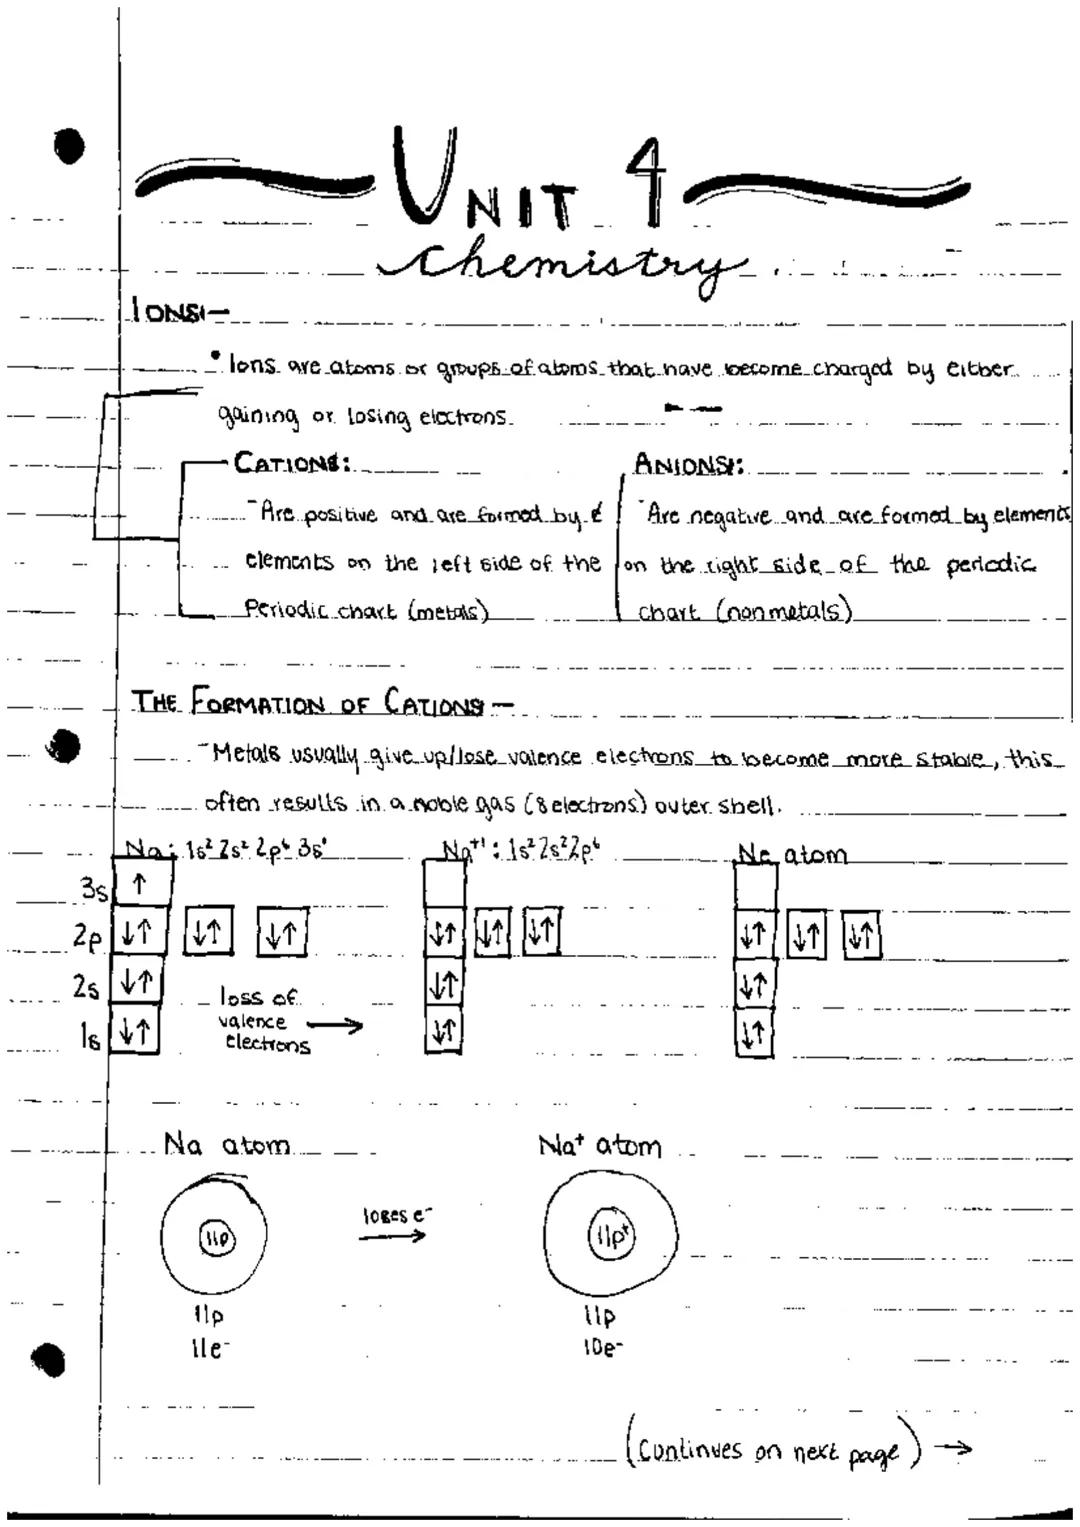 UNIT 4
Chemistry
IONS:-
• Ions are atoms or groups of atoms that have become charged by either
gaining or losing electrons.
CATIONS:
- Are positive and are formed by
elements on the left side of the
Periodic chart (metals)
ANIONS:
- Are negative and are formed by elements
on the right side of the periodic
chart (nonmetals)
THE FORMATION OF CATIONS -
- Metals usually give up/lose valence electrons to become more stable, this
often results in a noble gas (8 electrons) outer shell.
Na: 1s² 2s² 2p⁶ 3s¹
Na⁺¹: 1s² 2s² 2p⁶
Ne atom
3s ↑
2p ↓↑ ↓↑ ↓↑ ↓↑ ↓↑ ↓↑ ↓↑ ↓↑ ↓↑
2s ↓↑ ↓↑ ↓↑
1s ↓↑ ↓↑ ↓↑
loss of
valence →
electrons
Na atom
Na⁺ atom
11p
loses e⁻
→
11p⁺
11p
11e⁻
11p
10e⁻
(Continues on next page) →